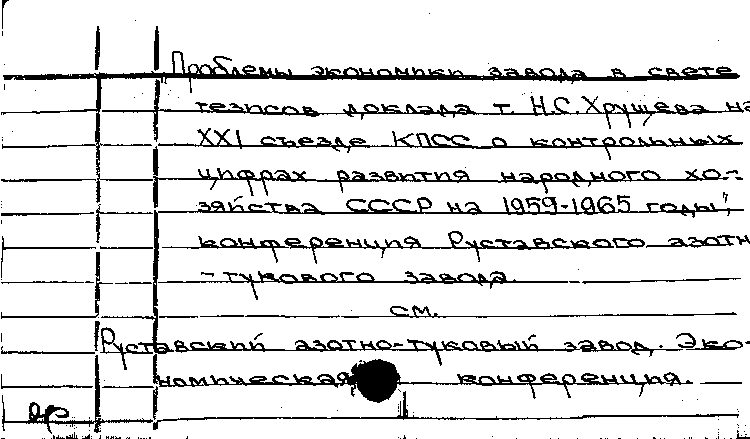 "Проблемы экономики завода в свете
тезисов доклада т. Н.С. Хрущева на
XXI съезде КПСС о контрольных
цифрах развития народного хо-
зяйства СССР на 1959-1965 годы",
конференция Руставского азотн
-тукового завода.
см.
Руставский азотно-туковый завод. Эко-
номическая конференция.